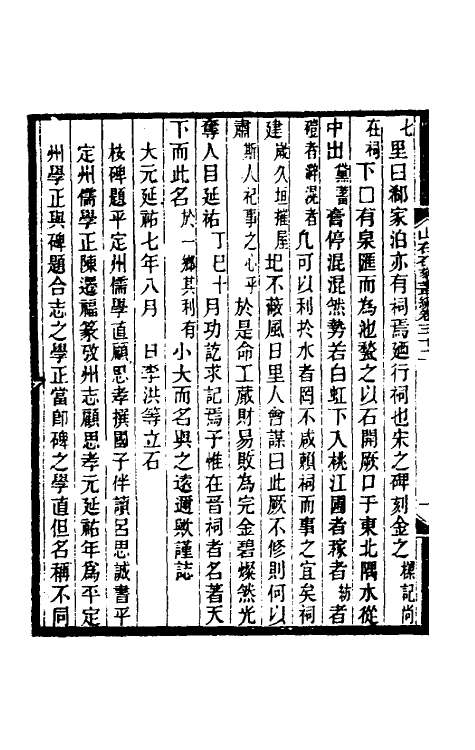 七里曰鄰家泊亦有祠焉廼行祠也宋之碑刻金之標記尚
在祠下□有泉匯而為池甃之以石開厥口于東北隅水從
中出黛蓄膏停混混然勢若白虹下入桃江園者稼者紡者
磑者澼浣者凡可以利於水者罔不咸賴祠而事之宜矣祠
建歲久垣摧屋圯不蔽風日里人會謀曰此厥不修則何以
肅斯人祀事之心乎於是命工蕆財易敗為完金碧燦然光
奪人目延祐丁巳十月功訖求記焉予惟在晉祠者名著天
下而此名於一鄉其利有小大而名與之遠邇歟謹誌
大元延祐七年八月　日李洪等立石
桉碑題平定州儒學直顧思孝撰國子伴讀呂思誠書平
定州儒學正陳遷福篆攷州志顧思孝元延祐年為平定
州學正與碑題合志之學正當卽碑之學直但名稱不同
山右石刻叢編卷三十二